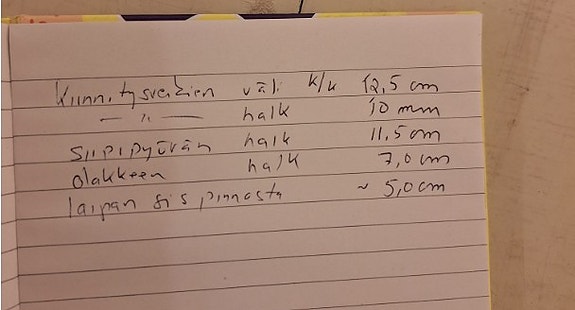 Kiinnitysreikien väli k/k 12,5 cm
— " — halk 10 mm
siipipyörän halk 11,5 cm
olakkeen halk 7,0 cm
laipan sis pinnasta ~ 5,0 cm